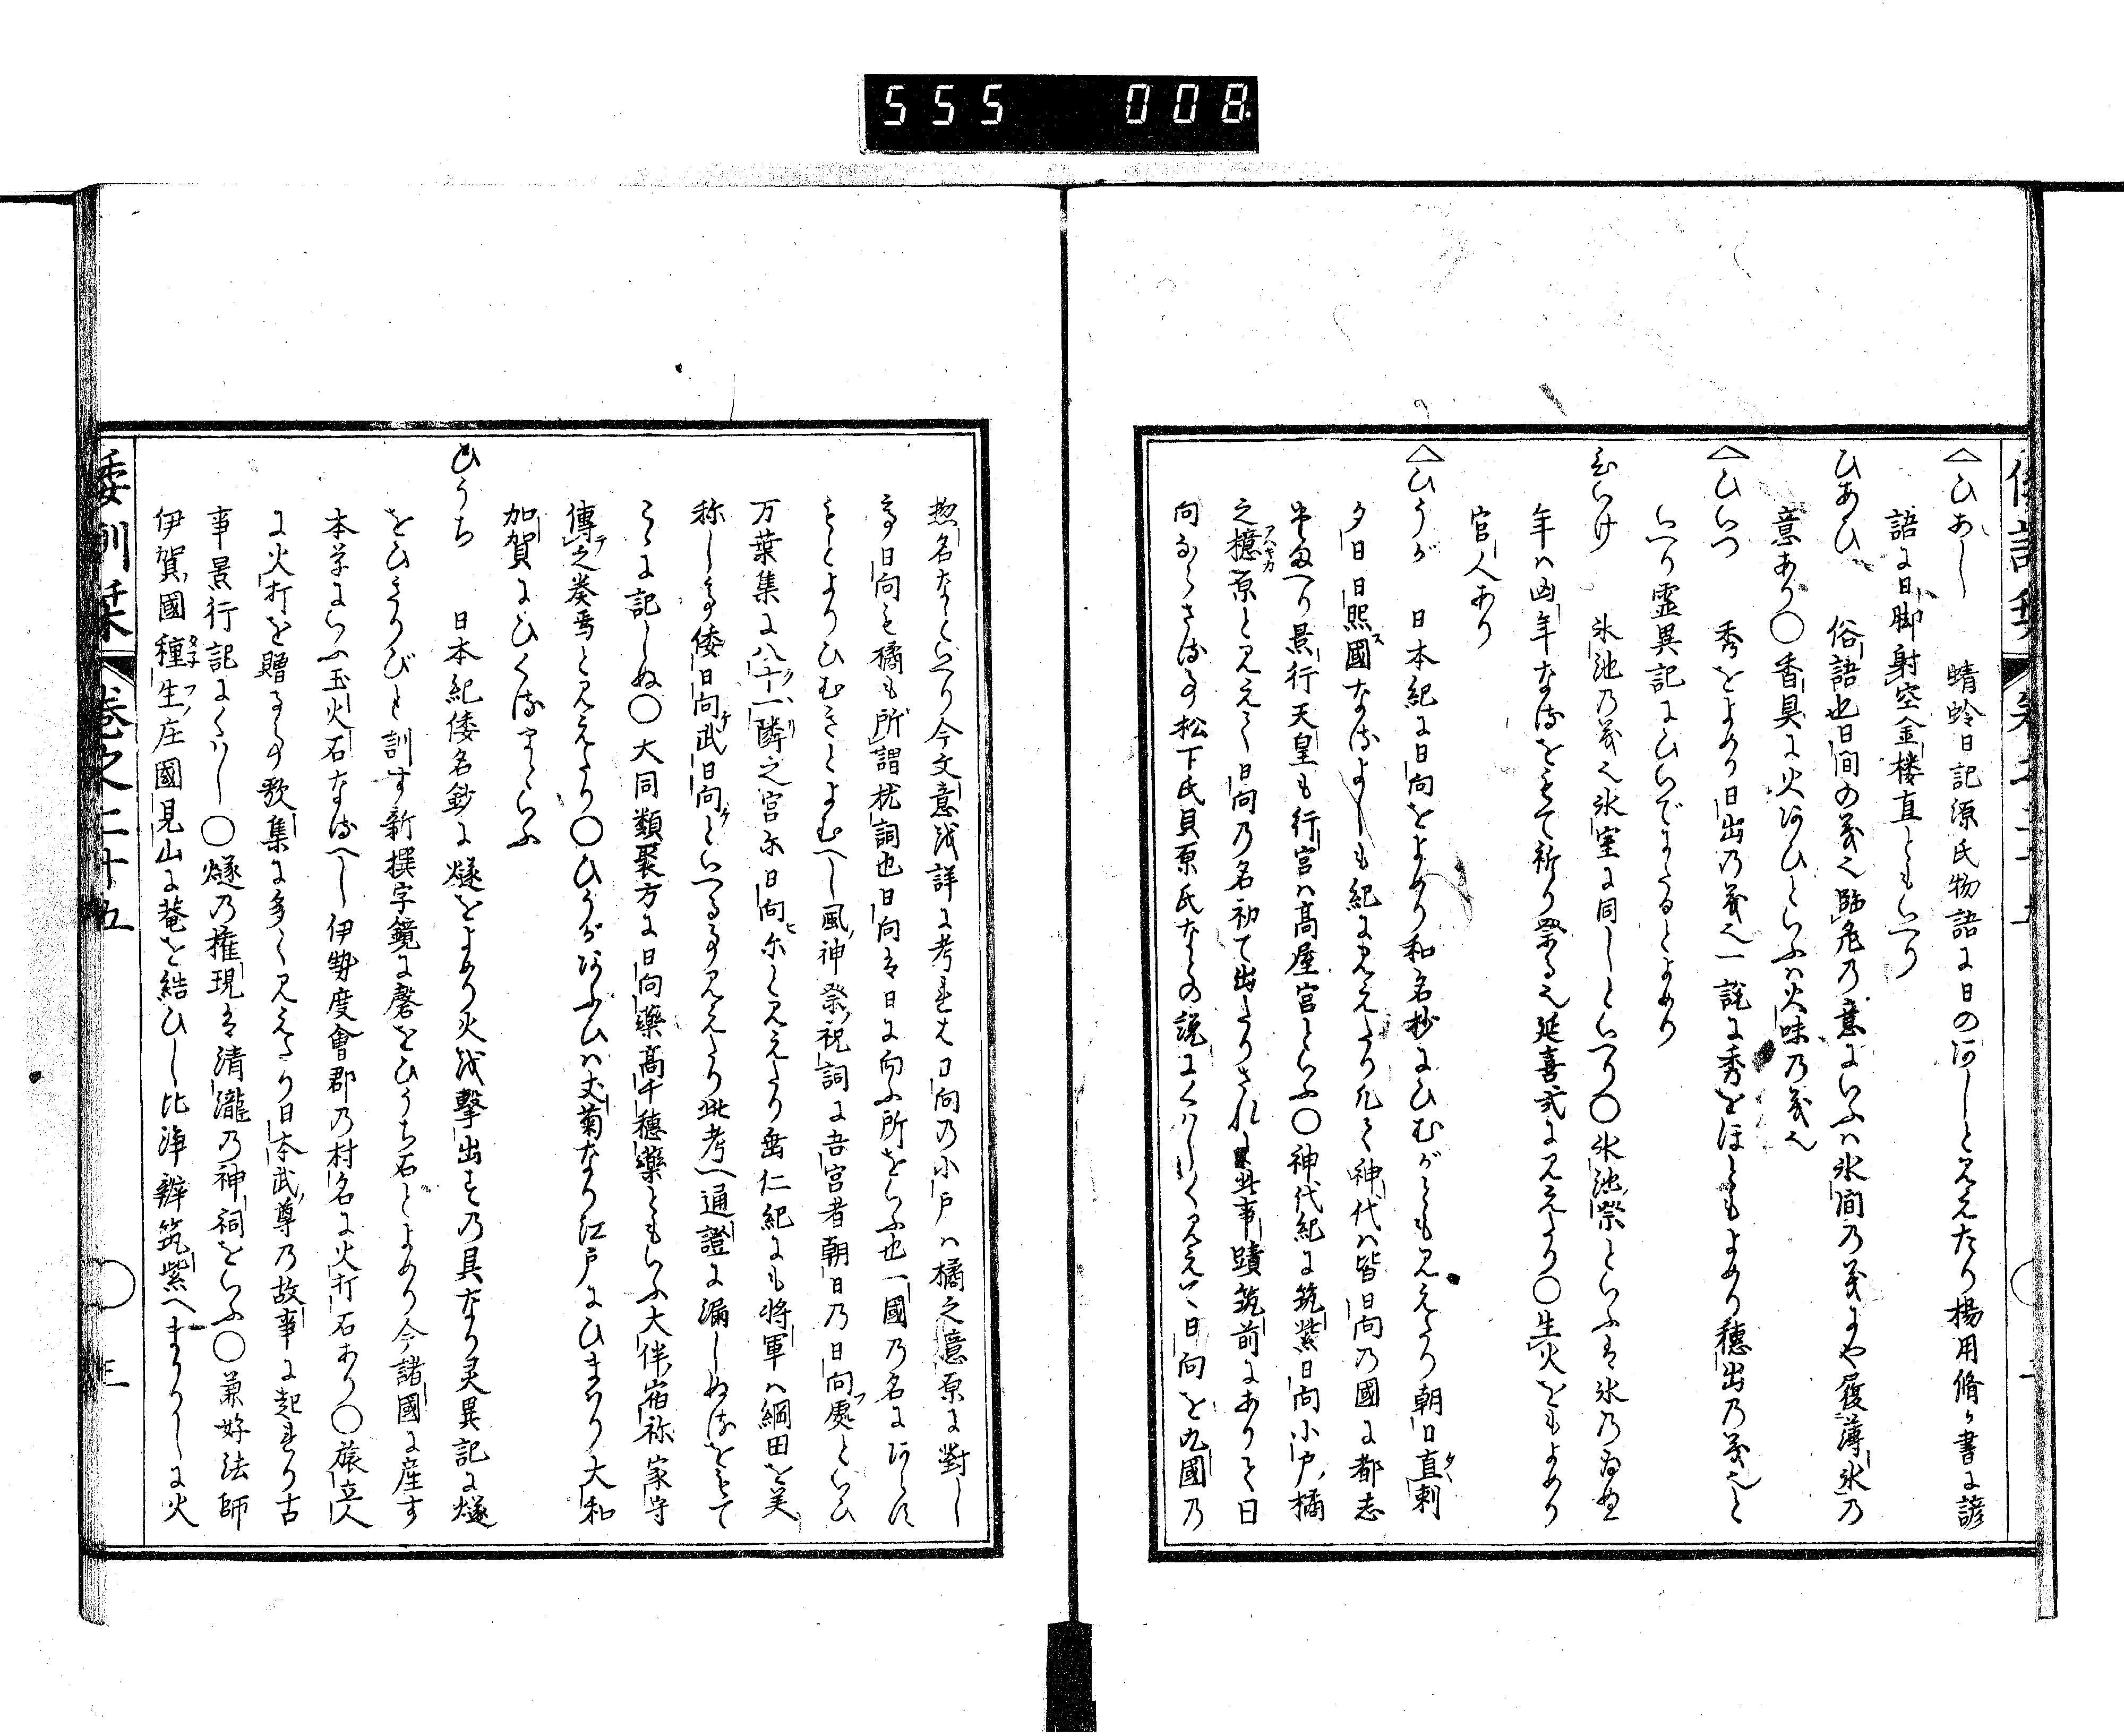 555 008
ひあし 蜻蛉日記源氏物語に日のあしと見えたり楊用脩か書に諺
語に日脚射空金楼直ともいへり
ひあひ 俗語也日間の義也臨危乃意にいふハ氷間乃義にや履薄氷乃
意あり○香具に火あひといふハ火味乃義也
ひいつ 秀をよめり日出乃義也一説に秀をほともよめり穂出乃義也と
いへり霊異記にひいでたるとよめり
ひいけ 氷池乃義也氷室に同しといへり○氷池祭といふは氷乃
年ハ凶年なるをもて祈り祭る也延喜式に見えたり○生火をもよめり
官人あり
ひうが 日本紀に日向をよめり和名抄にひむがとも見えたり朝日直刺
夕日日照國なるよしも紀に見えたり凡て神代ハ皆日向乃國に都志
たまへり景行天皇も行宮ハ高屋宮といふ○神代紀に筑紫日向小戸橘
之檍原と見えて日向乃名初て出たりされと此事蹟筑前にありて日
向ならさる事松下氏貝原氏なとの説にくハしく見え 日向を九國乃
惣名なといへり今文意を詳に考れは日向乃小戸ハ橘之檍原に對し
て日向も橘も所謂枕詞也日向は日に向ふ所をいふ也一國乃名にあらす
もとよりひむきとよむへし風神祭祝詞に吾宮者朝日乃日向處といひ
万葉集に八十一隣之宮尓日向尓と見えたり垂仁紀にも将軍八綱田を美
称して倭日向武日向といへる事見えたり此考へ通證に漏しぬるをもて
こゝに記しぬ○大同類聚方に日向藥高千穂藥ともいふ大伴宿祢家守
傳之奏焉と見えたり○ひうがあふひハ丈菊なり江戸にひまわり大和
加賀にひくるまといふ
ひうち 日本紀倭名鈔に燧をよめり火を擊出す乃具なり灵異記に燧
をひきりびと訓す新撰字鏡に磬をひうち石とよめり今諸國に産す
本草にいふ玉火石なるへし伊勢度會郡乃村名に火打石あり○旅立人
に火打を贈る事歌集に多く見えたり日本武尊乃故事に起れり古
事景行記にくハし○燧乃権現は清瀧乃神祠をいふ○兼好法師
伊賀國種生庄國見山に菴を結ひし比浄辨筑紫へまかりしに火
倭訓栞 巻之二十五 三